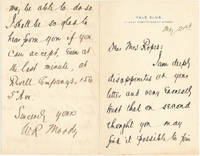 YALE CLUB,
May 22nd
Dear Mrs Roper:
I am deeply
disappointed at your
letter, and very earnestly
trust that on second
thought you may
find it possible to join
may be able to do so.
I shall be so glad to
hear from you if you
can accept, even at
the last minute, at
Revell Company's, 156
5th Ave.
Sincerely yours
W.R. Moody